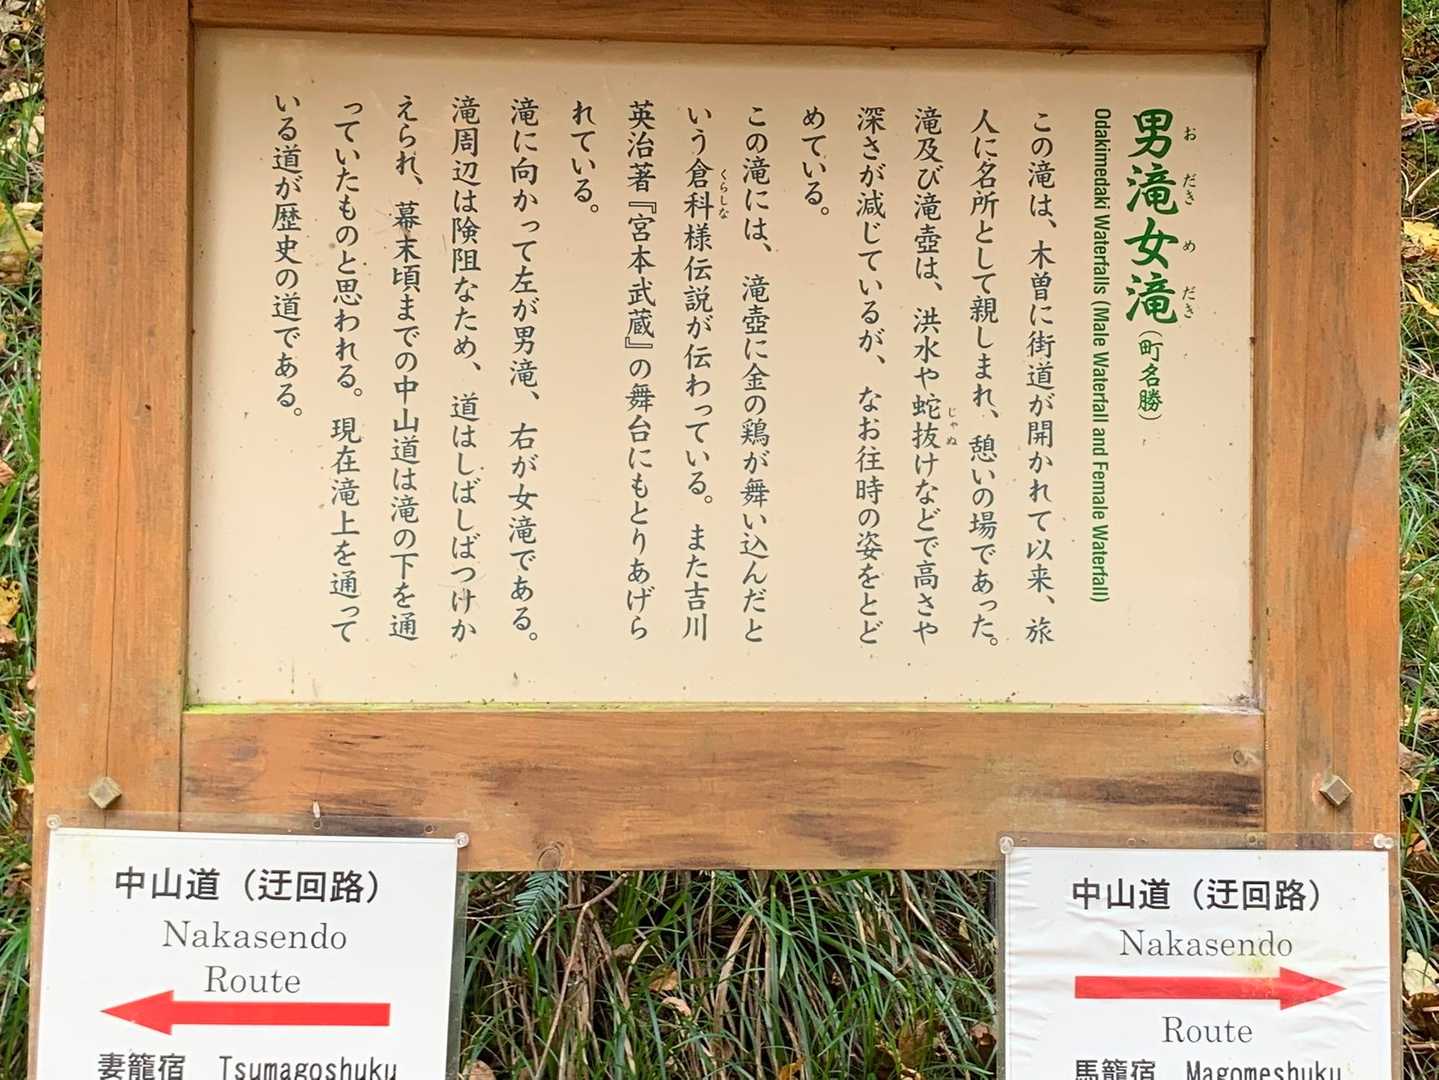 男滝女滝（町名勝）
おだきめだき
Odakimedaki Waterfalls (Male Waterfall and Female Waterfall)
この滝は、木曽に街道が開かれて以来、旅
人に名所として親しまれ、憩いの場であった。
滝及び滝壺は、洪水や蛇抜けなどで高さや
じゃぬ
深さが減じているが、なお往時の姿をとど
めている。
この滝には、滝壺に金の鶏が舞い込んだと
いう倉科様伝説が伝わっている。また吉川
くらしな
英治著『宮本武蔵』の舞台にもとりあげら
れている。
滝に向かって左が男滝、右が女滝である。
滝周辺は険阻なため、道はしばしばつけか
えられ、幕末頃までの中山道は滝の下を通
っていたものと思われる。現在滝上を通って
いる道が歴史の道である。
中山道（迂回路）
Nakasendo
Route
妻籠宿 Tsumagoshuku
中山道（迂回路）
Nakasendo
Route
馬籠宿 Magomeshuku